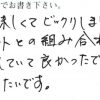 でお書き下さい。
味しくてビックリしま
ットとの組み合わ
ていて良かったで
たいです。